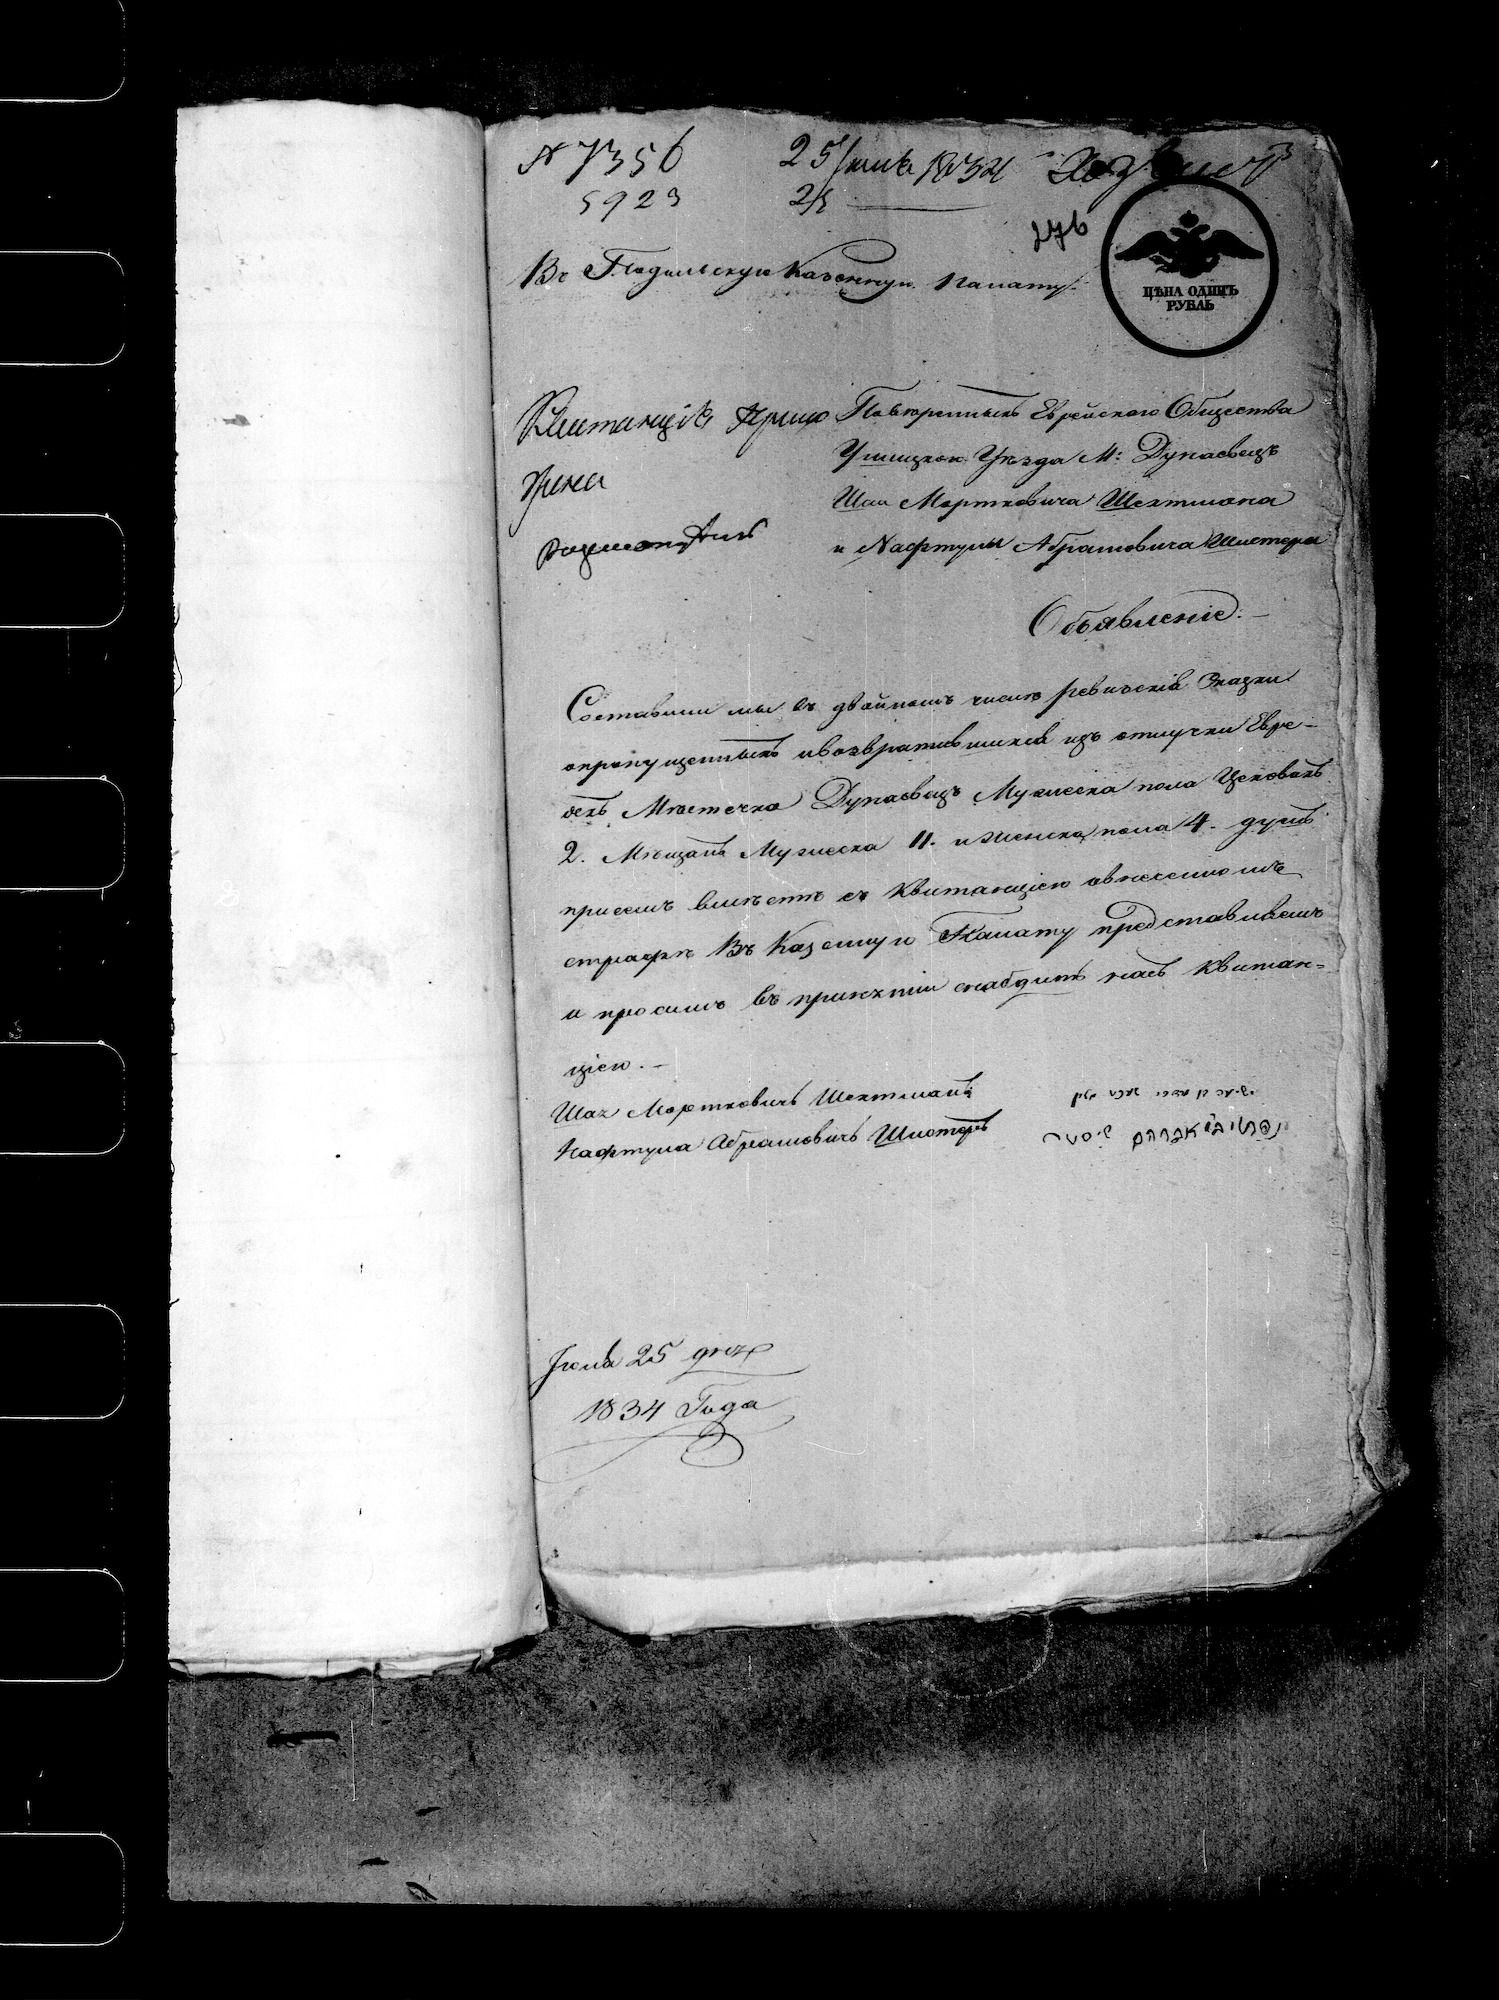 № 7356 25 Іюня 1834
5923
276
Въ Подольскую Казенную Палату.
ЦѢНА ОДИНЪ
РУБЛЬ
Квитанцію
Повѣренныхъ Еврейского Общества
Ушицкого Уѣзда М: Дунаевецъ
Шаи Мортковича Шехтмана
и Нафтулы Абрамовича Шистера
Объявленіе.
Составили мы въ двойномъ числѣ Ревизскія Сказки
опропущенныхъ ивозвратившихся изъ отлучки Евре-
яхъ Мѣстечка Дунаевецъ Мужеска пола Цеховыхъ
2. Мѣщанъ Мужеска 11. и женска пола 4. душъ
присемъ вмѣстѣ съ Квитанціею овнесенномъ
страфѣ Въ Казенную Палату представляемъ
и просимъ въ принятіи снабдить насъ Квитан=
ціею. —
Шая Мортковичъ Шехтманъ
Нафтула Абрамовичъ Шистеръ
נפתלי אברהם שיסטער
Іюня 25 дня
1834 Года